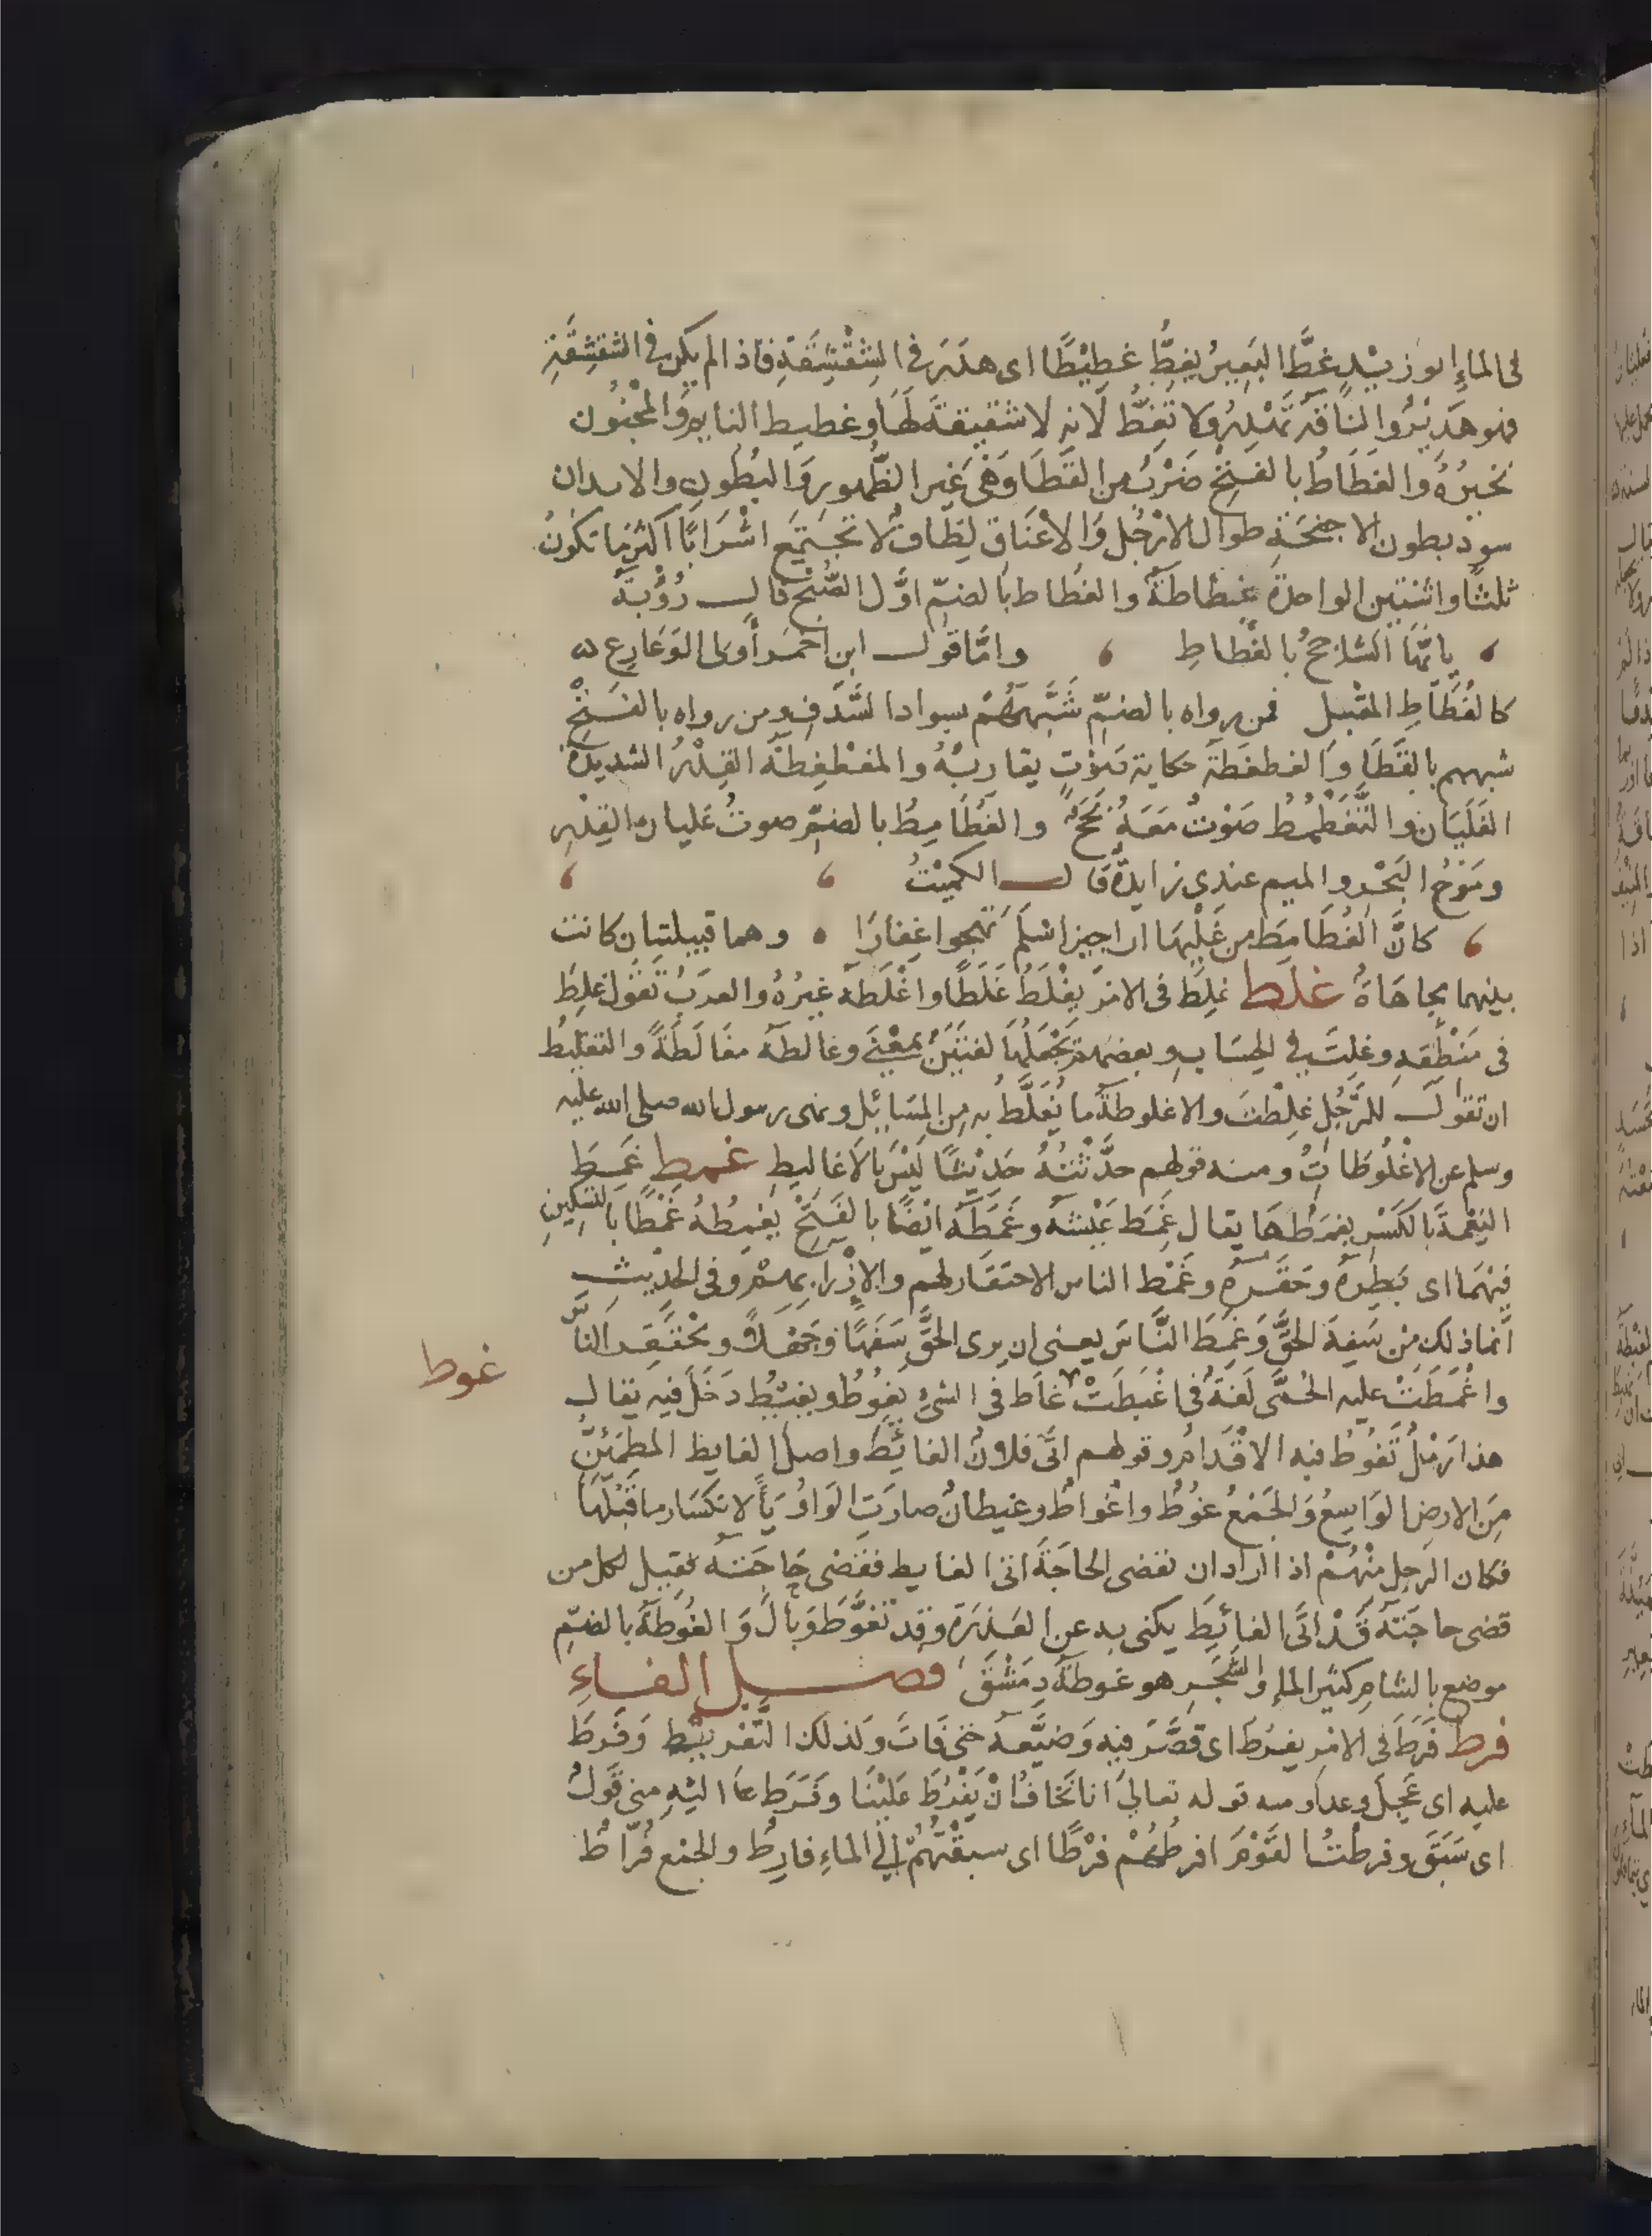 فى الماءِ ابو زيْدٍ غطَّ البَعِيرُ يغِطُّ غطِيْطًا اى هدَرَ فى الشِقْشِقَةِ فاذا لم يكن فى الشقشِقَةِ
فهو هَدِيْرٌ والنَاقَة تَهْدِرُ ولا تَغِطُّ لانه لا شقيقةَ لَهَا وغطيط النايم وَالمخْنُون
نخيرُهُ والغَطَاطُ بالفَتحْ ضَرْبٌ من القَطَا وَهْىَ غَير الظُهور وَالبُطُونِ والابدان
سودُ بطون الاجنحَةِ طوال الارْجُل وَالاعْنَاق لِطَافٌ لا تجتَمِع اسْرَابًا اكثر ما تكونُ
ثلثًا واثنتين الواحدة غَطاطَةٌ والغُطَاط بالضمّ اوَّل الصُبْح قال رُؤْبَةُ
يا يُّهَا الشاحجُ بالغُطاطِ وامَّا قول ابن احْمَر أولى الوَعَاوِعِ
كالغُطَاطِ المقْبل فمن رواه بالضمّ شَبَّهَهُمْ بسواد السَّدَفِ ومن رواه بالفَتحْ
شبههم بالقَطَا وَالغطغطَة حكاية صَوْتٍ يقاربُهُ والمغطْغِطَة القِدْرُ الشديدة
الغَلَيَان والتَّغَطْمُطُ صَوْتٌ مَعَهُ بَحَحٌ والغُطَامِطُ بالضمّ صوتُ غليان القِدْرِ
ومَوْجُ البَحْر والميم عندى زايدةٌ قال الكميْتُ
كانَّ الغُطَامِطَ من غَلْيِهَا اراجيز اسْلمَ تَهجوا غِفَارَا وهما قبيلتيان كانت
بينهما مُهاجَاةٌ غلط غلِطَ فى الامْر يغْلَطُ غَلَطًا واغْلَطَهُ غيرُهُ والعرَبُ تقول غلِط
فى مَنْطِقِهِ وغلِتَ فى الحِسَابِ وبعضهم يَجْعَلُهَا لغتَيْنِ بمَعْنَى وغالطَهُ مغَالَطَةً والتغليطُ
ان تقول للرَّجُلِ غلِطْتَ والاغلوطَةُ ما يُغَلَّطُ به مِن المسَايِل ونهى رسول الله صلى الله عليه
وسلم عن الاغْلُوطَاتِ ومنه قولهم حدَّثْتُهُ حَديْثًا لَيْسَ بالاغاليط غمط غَمِطَ
النِعْمةَ بالكَسْر يغمَطُهَا يقال غَمِطَ عَيْشَه وغَمَطَه ايْضًا بالفَتحْ يغمِطُهُ غَمْطًا بالتسْكينِ
فِيْهِمَا اى بَطِرَهُ وحَقَّرَهُ وغَمْط الناس الاحتقَار لهم والازْرا بهمْ وفى الحديْث
انَّما ذلك مِنْ سَفِهَ الحَقَّ وَغَمِطَ النَّاسَ يعنى ان يرى الحَقَّ سَفَهًا وجَهْلاً ويحْتَقِر النَاسَ
واغْمَطَتْ عليه الحُمَّى لَغةٌ فى اغْبَطَتْ غاطَ فى الشىْءِ يغُوطُ ويغيْطُ دَخَلَ فيه يقال
غوط
هذا رَمْلٌ تَغُوطُ فيه الاقْدَامُ وقولهم اتَى فلانٌ الغائطَ واصل الغايط المطمئنُّ
مِنَ الارض الوَاسِعُ وَالجَمْعُ غُوطٌ واغْواطٌ وغيطانٌ صارَتِ الوَاوُ يَاءً لانكسَار ما قبْلَهَا
فكان الرجل مِنْهُمْ اذا اراد ان يقضى الحاجَةَ اتى الغايط فقضى حاجَتَهُ فقيل لكل من
قضى حاجَتَهُ قَدْ اتَى الغائطَ يكنى به عن العَذِرَةِ وقد تَغوَّطَ وَبالَ وَالغُوطَةُ بالضمّ
موضع بالشام كثير الماءِ والشَّجَر هو غوطةُ دِمَشْقَ فصل الفاءِ
فرط فَرَطَ فى الامر يفرُط اى قصَّرَ فيه وَضيَّعَهُ حتى فَاتَ وكذلك التَّفريْط وَفَرَطَ
عليه اى عَجِلَ وعدا ومنه قوله تعالى اننا نَخَافُ اَنْ يَفْرُطَ عَلَيْنَا وفَرَط الَيْهِ منى قَولٌ
اى سَبَقَ وفرطتُ القَوْمَ افرطُهُمْ فرْطًا اى سبقْتُهُمْ الى الماءِ فارطٌ والجمْع فُرّاطٌ